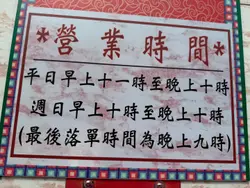 *營業時間*
平日早上十一時至晚上十時
週日早上十時至晚上十時
(最後落單時間為晚上九時)